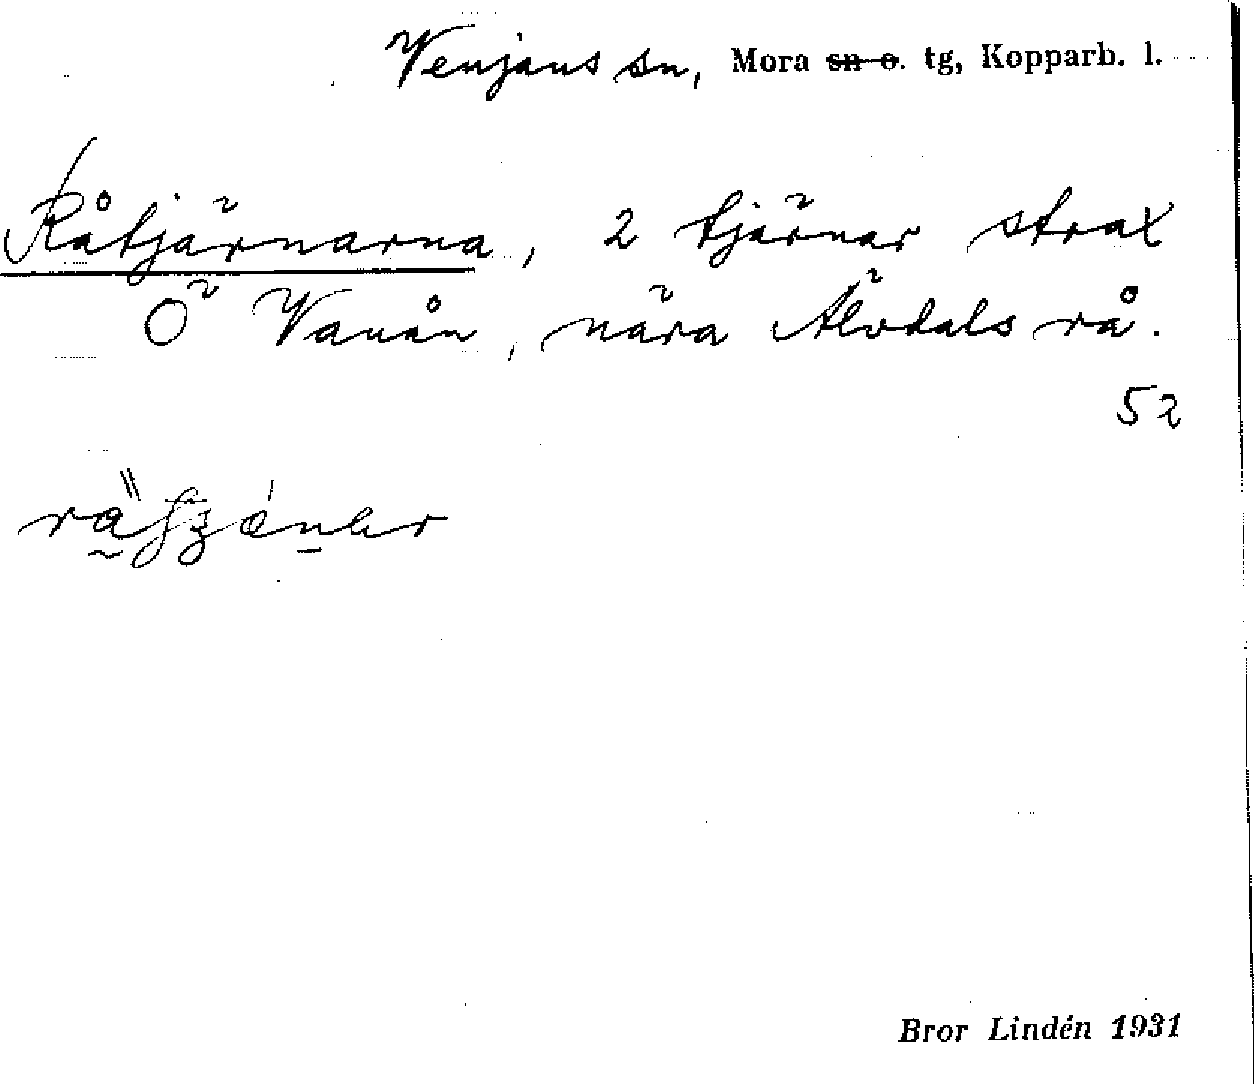 Venjans sn, Mora sn o. tg, Kopparb. l.
Råtjärnarna, 2 tjärnar strax
Ö Vanån, nära Älvdals rå.
52
Bror Lindén 1931